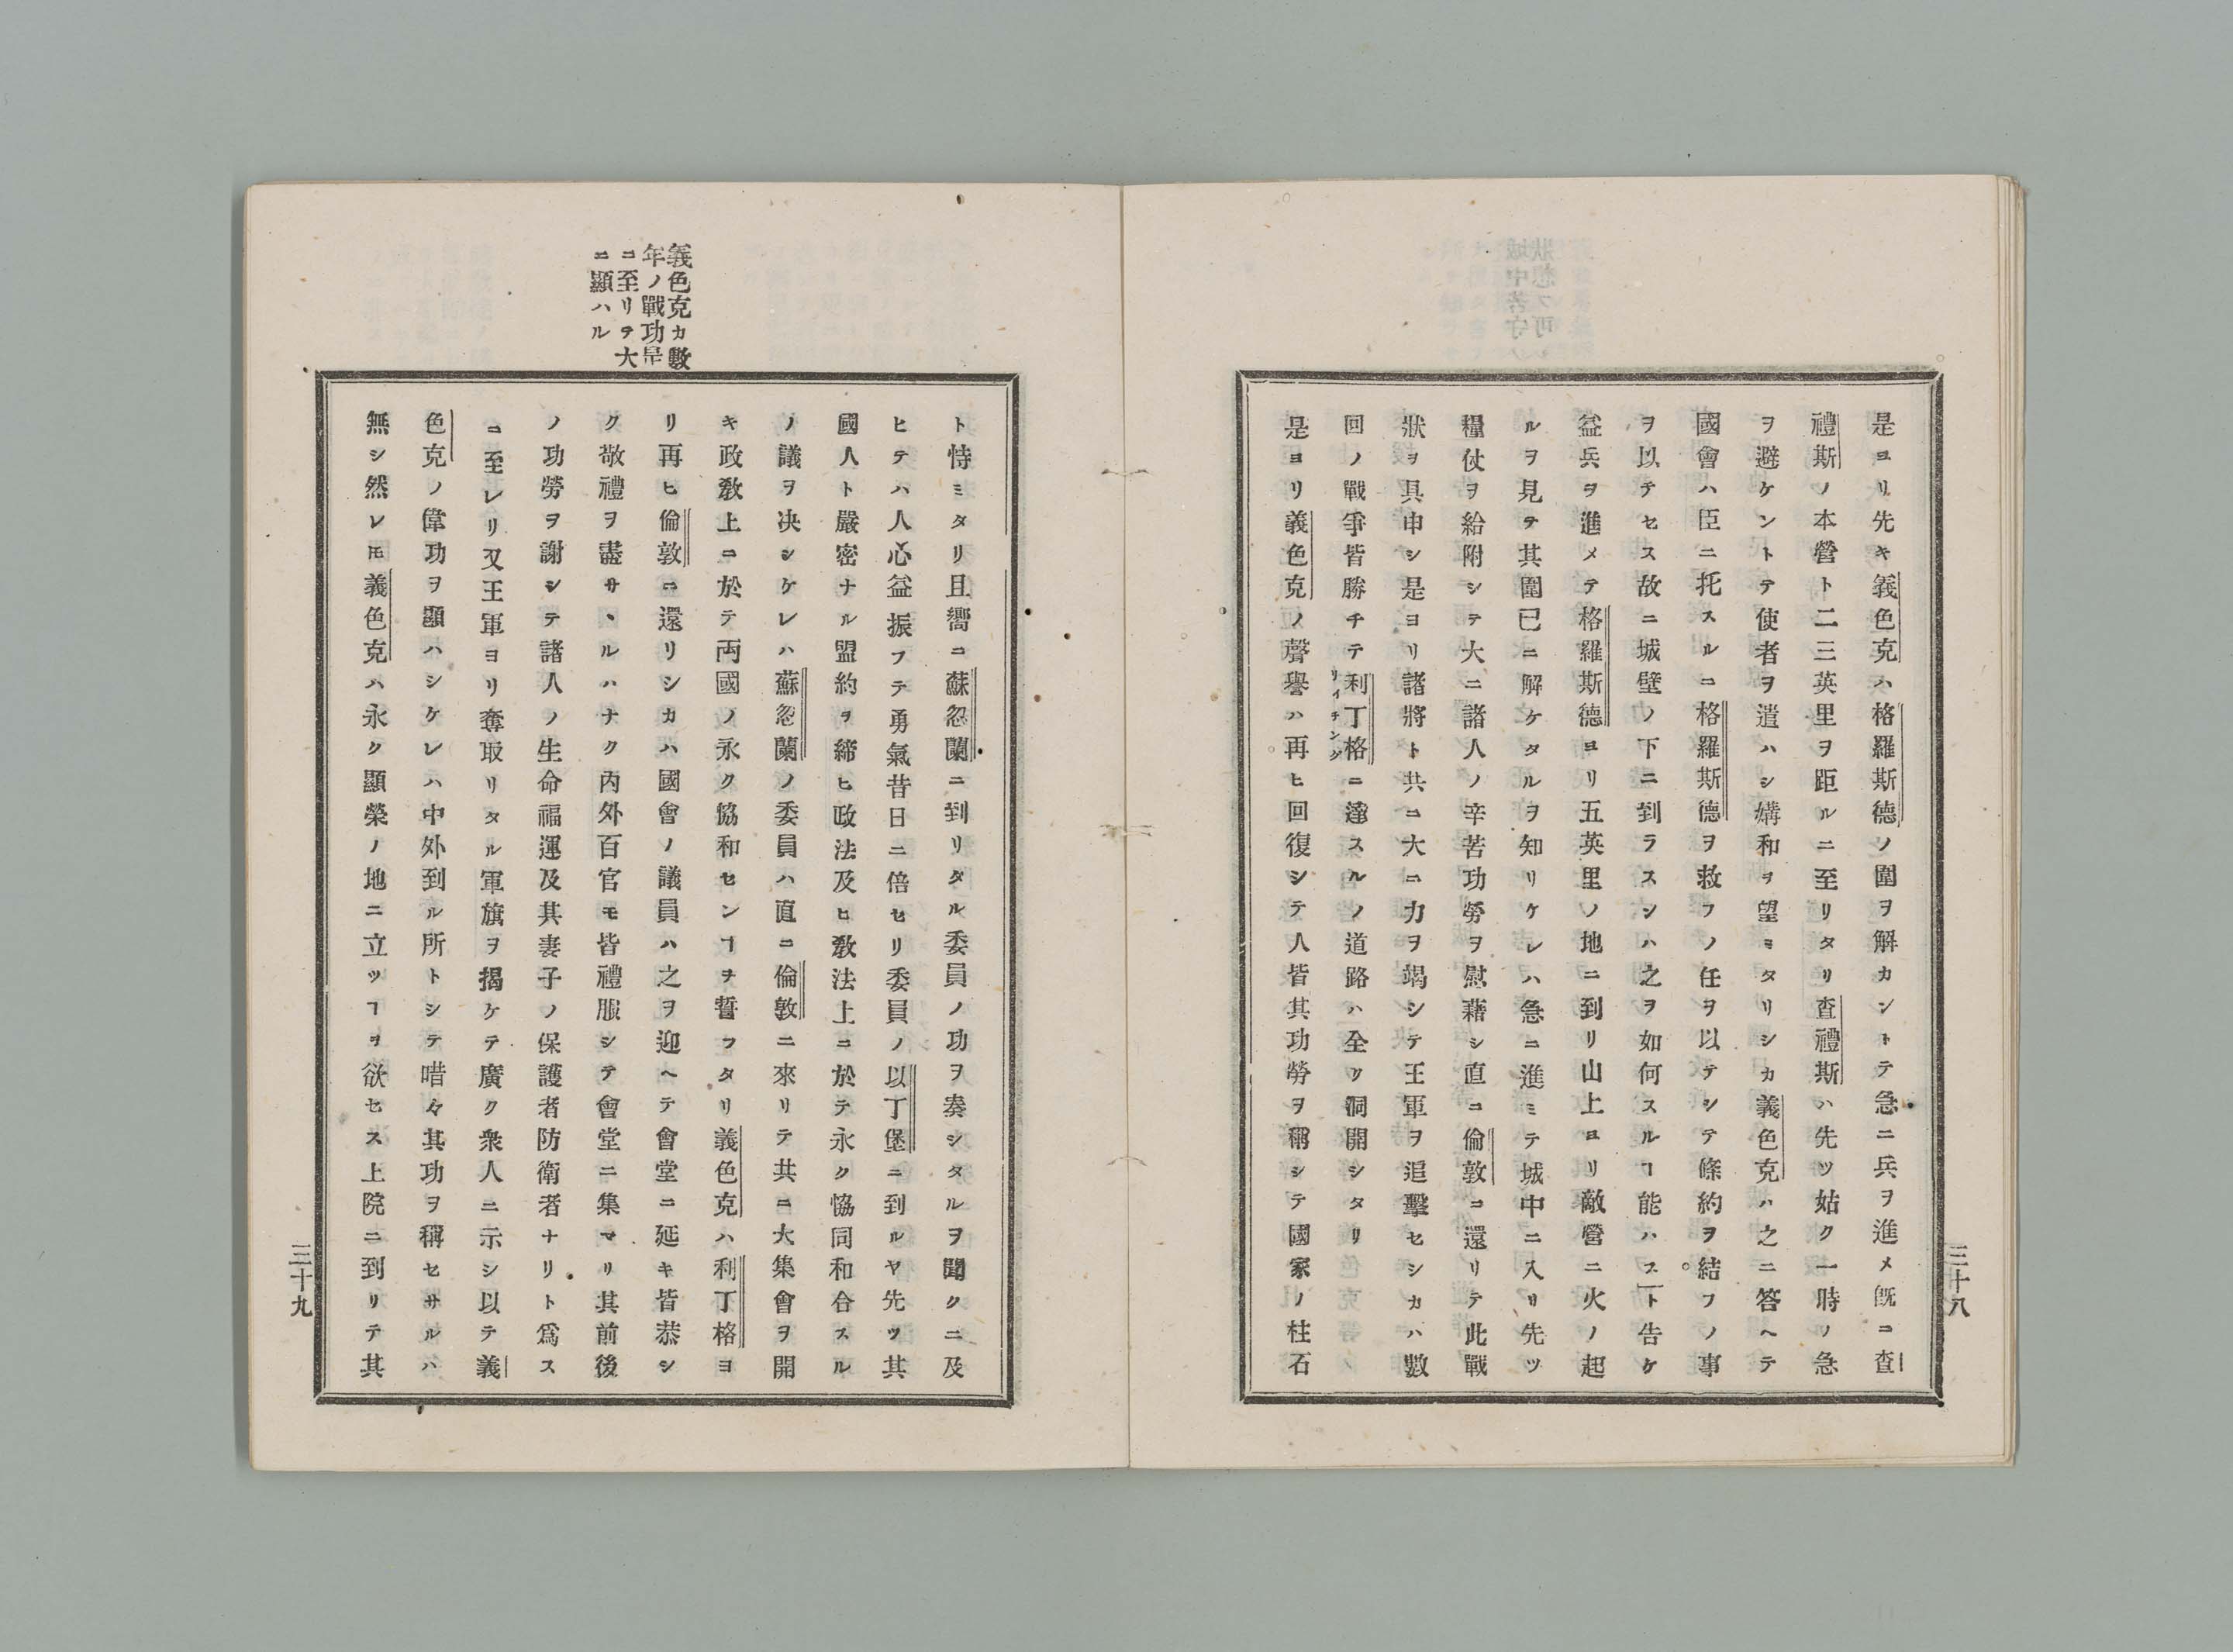 是ヨリ先キ義色克ハ格羅斯德ノ圍ヲ解カントテ急ニ兵ヲ進メ既ニ查
禮斯ノ本營ト二三英里ヲ距ルニ至リタリ查禮斯ハ先ツ姑ク一時ノ急
ヲ避ケントテ使者ヲ遣ハシ媾和ヲ望ミタリシカ義色克ハ之ニ答ヘテ
國會ハ臣ニ托スルニ格羅斯德ヲ救フノ任ヲ以テシテ條約ヲ結フノ事
ヲ以テセス故ニ城壁ノ下ニ到ラスンハ之ヲ如何スルヿ能ハスト告ケ
益兵ヲ進メテ格羅斯德ヨリ五英里ノ地ニ到リ山上ヨリ敵營ニ火ノ起
ルヲ見テ其圍已ニ解ケタルヲ知リケレハ急ニ進ミテ城中ニ入リ先ツ
糧仗ヲ給附シテ大ニ諸人ノ辛苦功勞ヲ慰藉シ直ニ倫敦ニ還リテ此戰
狀ヲ具申シ是ヨリ諸將ト共ニ大ニ力ヲ竭シテ王軍ヲ追擊セシカハ數
回ノ戰爭皆勝チテ利丁格ニ達スルノ道路ハ全ク洞開シタリ
リイヂング
是ヨリ義色克ノ聲譽ハ再ヒ回復シテ人皆其功勞ヲ稱シテ國家ノ柱石
三十八
義色克カ數
年ノ戰功是
ニ至リテ大
ニ顯ハル
ト恃ミタリ且嚮ニ蘇忽蘭ニ到リタル委員ノ功ヲ奏シタルヲ聞クニ及
ヒテハ人心益振フテ勇氣昔日ニ倍セリ委員ノ以丁堡ニ到ルヤ先ツ其
國人ト嚴密ナル盟約ヲ締ヒ政法及ヒ敎法上ニ於テ永ク協同和合スル
ノ議ヲ决シケレハ蘇忽蘭ノ委員ハ直ニ倫敦ニ來リテ共ニ大集會ヲ開
キ政敎上ニ於テ兩國ノ永ク協和センヿヲ誓フタリ義色克ハ利丁格ヨ
リ再ヒ倫敦ニ還リシカハ國會ノ議員ハ之ヲ迎ヘテ會堂ニ延キ皆恭シ
ク敬禮ヲ盡サヽルハナク內外百官モ皆禮服シテ會堂ニ集マリ其前後
ノ功勞ヲ謝シテ諸人ノ生命福運及其妻子ノ保護者防衛者ナリト爲ス
ニ至レリ又王軍ヨリ奪取リタル軍旗ヲ揭ケテ廣ク衆人ニ示シ以テ義
色克ノ偉功ヲ顯ハシケレハ中外到ル所トシテ喈々其功ヲ稱セサルハ
無シ然レㇳモ義色克ハ永ク顯榮ノ地ニ立ツヿヲ欲セス上院ニ到リテ其
三十九